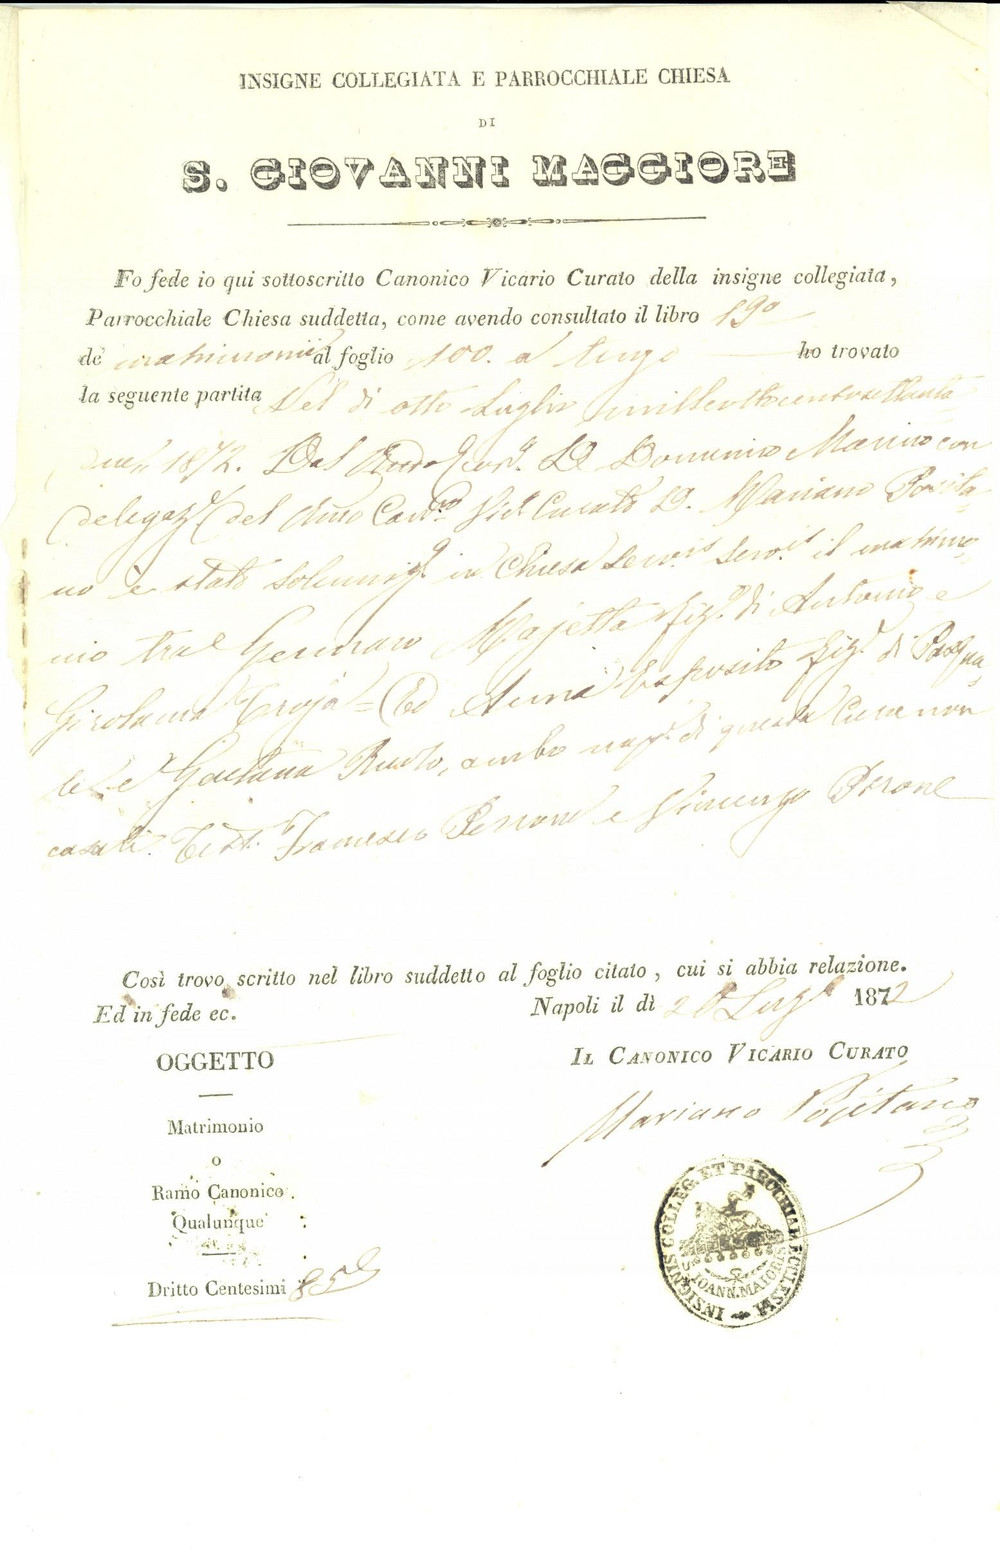 INSIGNE COLLEGIATA E PARROCCHIALE CHIESA
DI
S. GIOVANNI MAGGIORE
Fo fede io qui sottoscritto Canonico Vicario Curato della insigne collegiata,
Parrocchiale Chiesa suddetta, come avendo consultato il libro 19º
de matrimonii al foglio 100. a tergo ho trovato
la seguente partita Nel dì otto Luglio milleottocentosettanta
due 1872. Dal D. Domenico Marino con
delegaz. del Curato D. Mariano Posita
no è stato solenniz. in Chiesa serv. serv. il matrimo
nio tra Gennaro Majetta fig. di Antonio e
Girolama Troja = Ed Anna Esposito fig. di Pasqua
le e Gaetana Ruoto, ambo nap. di questa Cura non
casati. Test. Francesco Perrone e Vincenzo Perone
Così trovo scritto nel libro suddetto al foglio citato, cui si abbia relazione.
Ed in fede ec.
Napoli il dì 20 Lug. 1872
OGGETTO
Matrimonio
o
Ramo Canonico
Qualunque
Dritto Centesimi 85
IL CANONICO VICARIO CURATO
Mariano Positano
INSIGNIS COLLEG. ET PAROCHIAL ECCLESIA
S. IOANN. MAIORIS